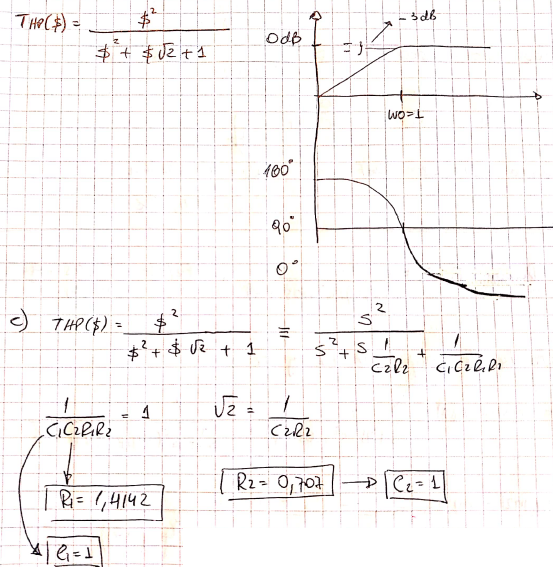 THP($) = $² / ($² + $√2 + 1)
-3dB
0dB
ω0=1
180°
90°
0°
c) THP($) = $² / ($² + $ √2 + 1) ≡ S² / (S² + S 1/(C2R2) + 1/(C1C2R1R2))
1/(C1C2R1R2) = 1 √2 = 1/(C2R2)
R1 = 1,4142 R2 = 0,707 → C2 = 1
C1 = 1